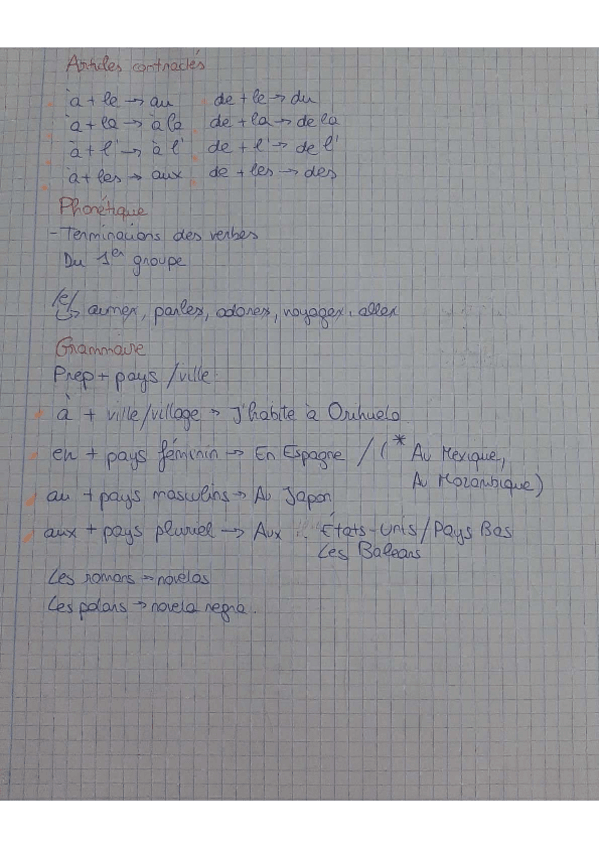 Articles contractés
à + le → au de + le → du
à + la → à la de + la → de la
à + l' → à l' de + l' → de l'
à + les → aux de + les → des
Phonétique
- Terminaions des verbes
Du 1er groupe
/e/
↳ aimer, parler, adorer, voyager, aller
Grammaire
Prep + pays / ville
à + ville/village → J'habite à Orihuela
en + pays féminin → En Espagne / (* Au Mexique,
Au Mozambique)
au + pays masculins → Au Japon
aux + pays pluriel → Aux États-Unis / Pays Bas
Les Balears
Les romans → novelas
Les polars → novela negra.